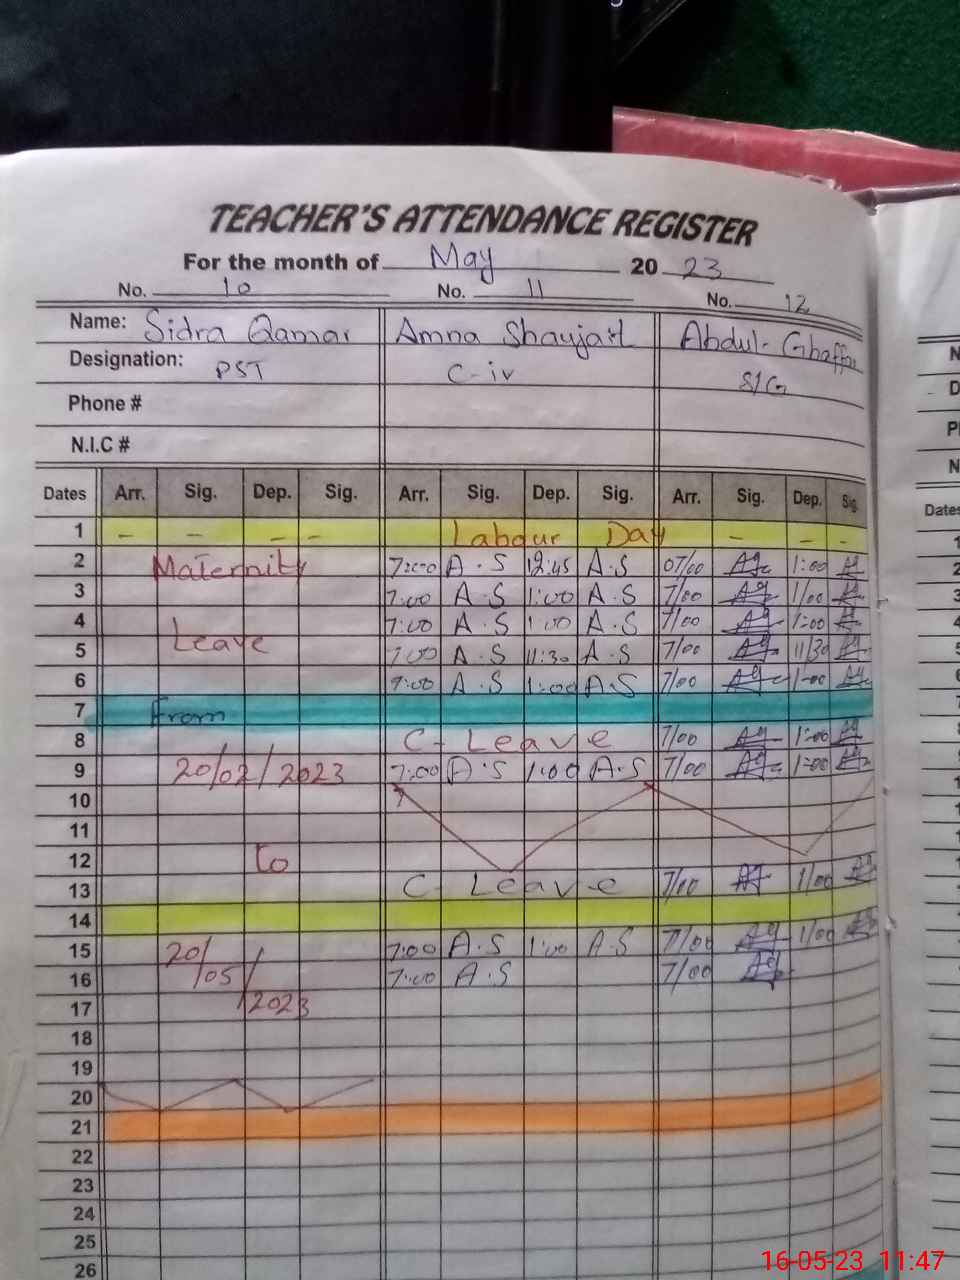 TEACHER'S ATTENDANCE REGISTER
For the month of May 20 23
No. 10 No. 11 No. 12
Name: Sidra Qamar Amna Shaujaat Abdul-Ghaffar
Designation: PST C-iv S/G
Phone #
N.I.C #
Dates Arr. Sig. Dep. Sig. Arr. Sig. Dep. Sig. Arr. Sig. Dep. Sig.
1 - - - - Labour Day - - -
2 Maternity 7:00 A.S 12:45 A.S 07/00 1:00
3 7:00 A.S 1:00 A.S 7/00 1/00
4 Leave 7:00 A.S 1:00 A.S 7/00 1:00
5 7:00 A.S 11:30 A.S 7/00 11/30
6 7:00 A.S 1:00 A.S 7/00 1:00
7 From
8 C-Leave 7/00 1:00
9 20/02/2023 7:00 A.S 1:00 A.S 7/00 1:00
10
11
12 to
13 C-Leave 7/00 1/00
14
15 20/ 7:00 A.S 1:00 A.S 7/00 1/00
16 05/ 7:00 A.S 7/00
17 2023
18
19
20
21
22
23
24
25
26
N
D
P
N
Dates
1
2
3
4
5
6
7
8
16-05-23 11:47